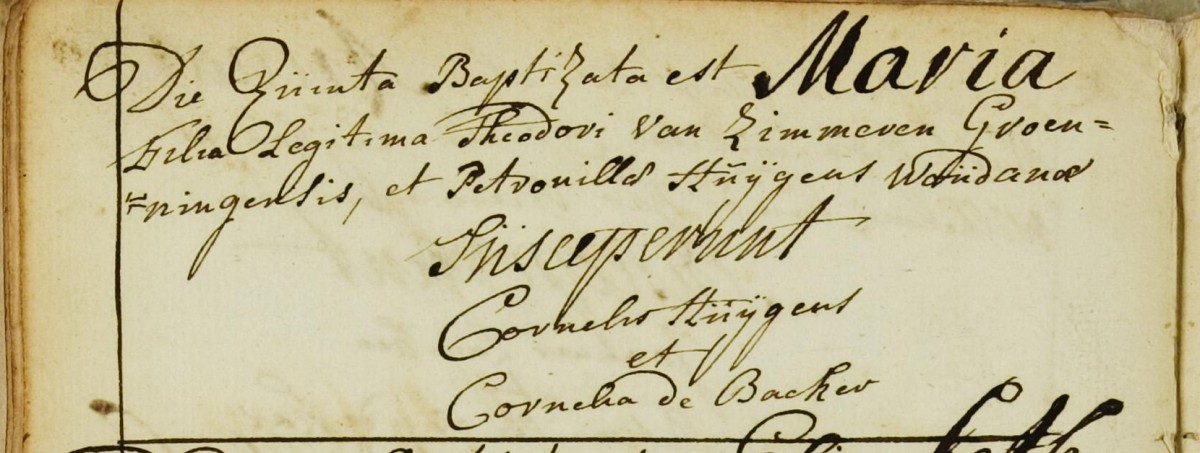 Die Quinta Baptizata est Maria
Filia Legitima Theodori Van Zimmeren Groen=
=ningensis, et Petronillæ Huÿgens Woudanæ
Susceperunt
Cornelis Huÿgens
et
Cornelia de Backer